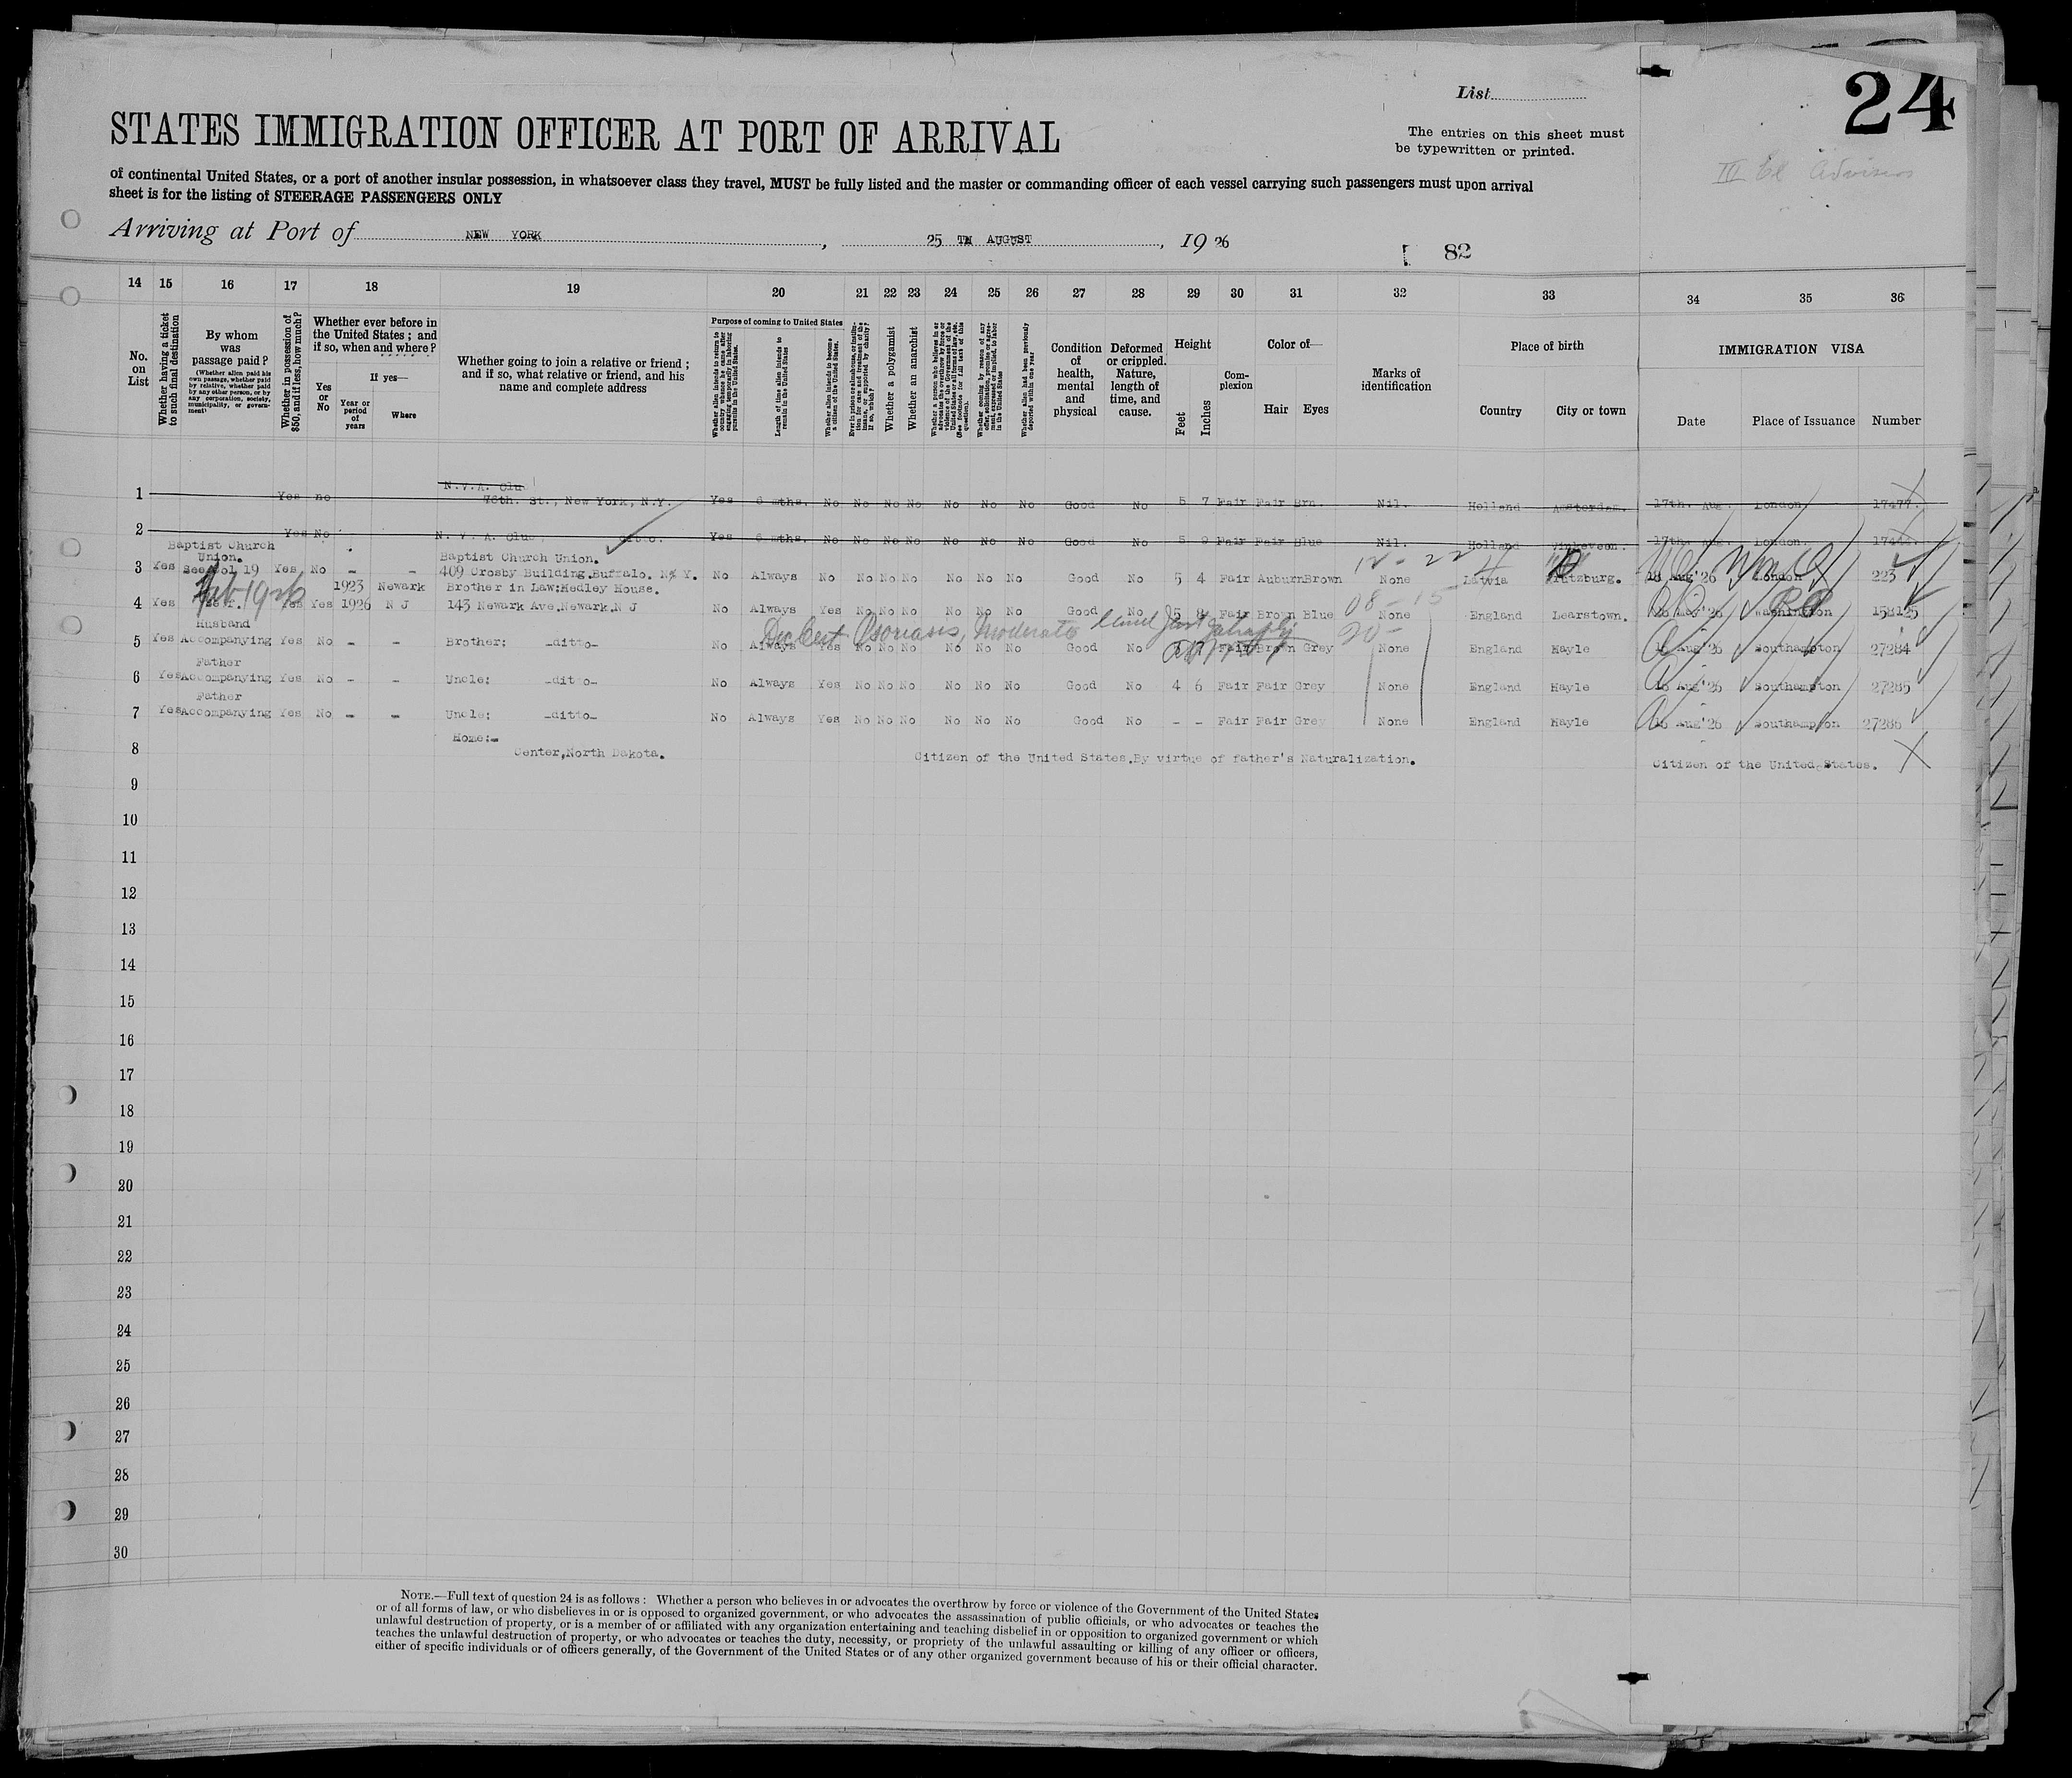 24
List
The entries on this sheet must
be typewritten or printed.
STATES IMMIGRATION OFFICER AT PORT OF ARRIVAL
of continental United States, or a port of another insular possession, in whatsoever class they travel, MUST be fully listed and the master or commanding officer of each vessel carrying such passengers must upon arrival
sheet is for the listing of STEERAGE PASSENGERS ONLY
Arriving at Port of NEW YORK, 25 TH AUGUST, 19 26
82
14 15 16 17 18 19 20 21 22 23 24 25 26 27 28 29 30 31 32 33 34 35 36
No. on List
Whether having a ticket to such final destination
By whom was passage paid?
(Whether alien paid his own passage, whether paid by relative, whether paid by any other person, or by any corporation, society, municipality, or government)
Whether in possession of $50, and if less, how much?
Whether ever before in the United States; and if so, when and where?
Yes or No
If yes—
Year or period of years
Where
Whether going to join a relative or friend; and if so, what relative or friend, and his name and complete address
Purpose of coming to United States
Length of time alien intends to remain in the United States
Whether alien intends to become a citizen of the United States.
Whether a polygamist
Whether an anarchist
Whether alien had been previously deported within one year
Condition of health, mental and physical
Deformed or crippled. Nature, length of time, and cause.
Height
Feet
Inches
Complexion
Color of—
Hair Eyes
Marks of identification
Place of birth
Country City or town
IMMIGRATION VISA
Date Place of Issuance Number
N.V.A. Clu
1 Yes no 76th. St., New York, N.Y. Yes 6 mths. No No No No No No No Good No 5 7 Fair Fair Brn. Nil. Holland Amsterdam. 17th. Aug. London 17477.
2 Yes No N. V. A. Clu ditto. Yes 6 mths. No No No No No No No Good No 5 9 Fair Fair Blue Nil. Holland Vinkeveen. 17th. Aug. London.
Baptist Church
Union. Baptist Church Union. 12 - 22
3 Yes See Col 19 Yes No - - 409 Crosby Building.Buffalo. N Y. No Always No No No No No No No Good No 5 4 Fair Auburn Brown None Latvia 18 Aug '26 London 223
1923 Newark Brother in Law:Hedley House.
4 Yes Self. Yes Yes 1926 N J 143 Newark Ave.Newark.N J No Always Yes No No No No No No Good No 5 8 Fair Brown Blue None England Learstown. Washington 158125
Husband
5 Yes Accompanying Yes No - - Brother: -ditto- No Always Yes No No No No No No Good No Fair Brown Grey None England Hayle Aug '26 Southampton 27284
Psoriasis, Moderate
Father
6 Yes Accompanying Yes No - - Uncle: -ditto- No Always Yes No No No No No No Good No 4 6 Fair Fair Grey None England Hayle 16 Aug '26 Southampton 27285
Father
7 Yes Accompanying Yes No - - Uncle: -ditto- No Always Yes No No No No No No Good No - - Fair Fair Grey None England Hayle 16 Aug '26 Southampton 27286
Home:-
8 Center,North Dakota. Citizen of the United States.By virtue of father's Naturalization. Citizen of the United States.
9
10
11
12
13
14
15
16
17
18
19
20
21
22
23
24
25
26
27
28
29
30
NOTE.—Full text of question 24 is as follows: Whether a person who believes in or advocates the overthrow by force or violence of the Government of the United States
or of all forms of law, or who disbelieves in or is opposed to organized government, or who advocates the assassination of public officials, or who advocates or teaches the
unlawful destruction of property, or is a member of or affiliated with any organization entertaining and teaching disbelief in or opposition to organized government or which
teaches the unlawful destruction of property, or who advocates or teaches the duty, necessity, or propriety of the unlawful assaulting or killing of any officer or officers,
either of specific individuals or of officers generally, of the Government of the United States or of any other organized government because of his or their official character.